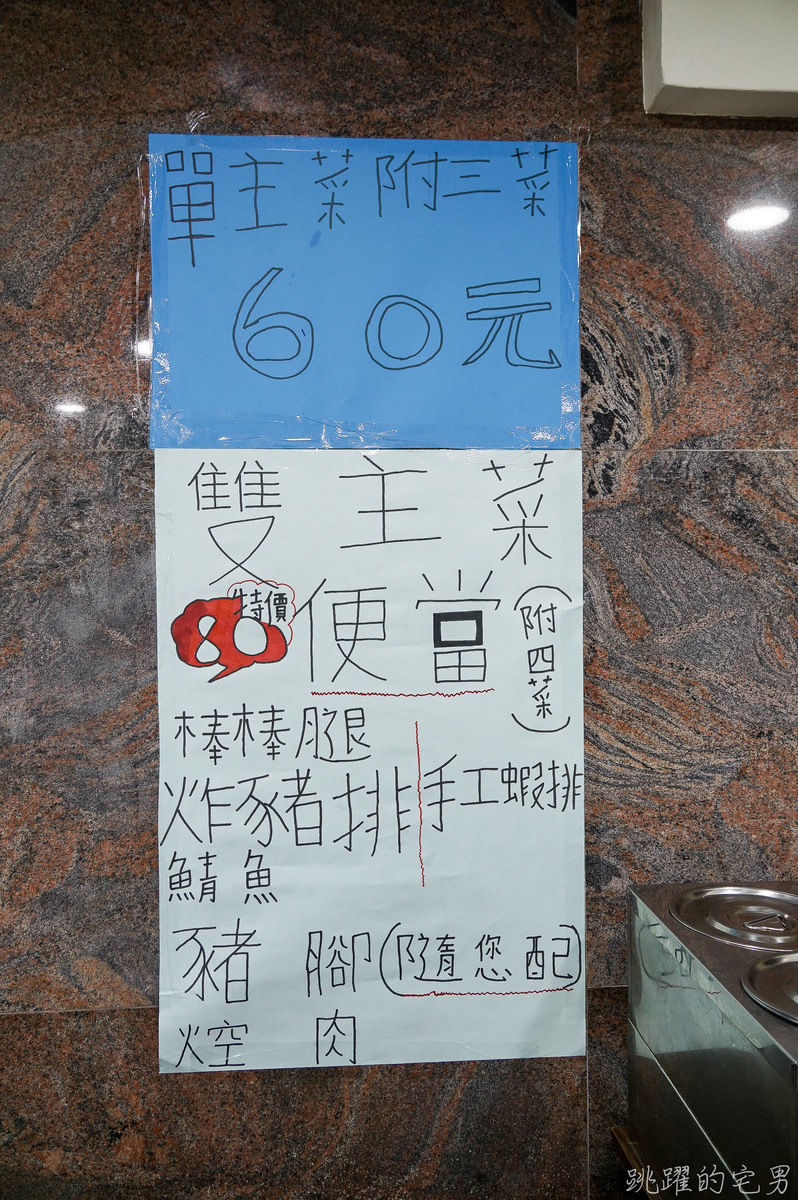 單主菜附三菜
60元
雙主菜
特價
80
便當
(附四菜)
棒棒腿
炸豬排
手工蝦排
鯖魚
豬腳(隨您配)
焢肉
跳躍的宅男